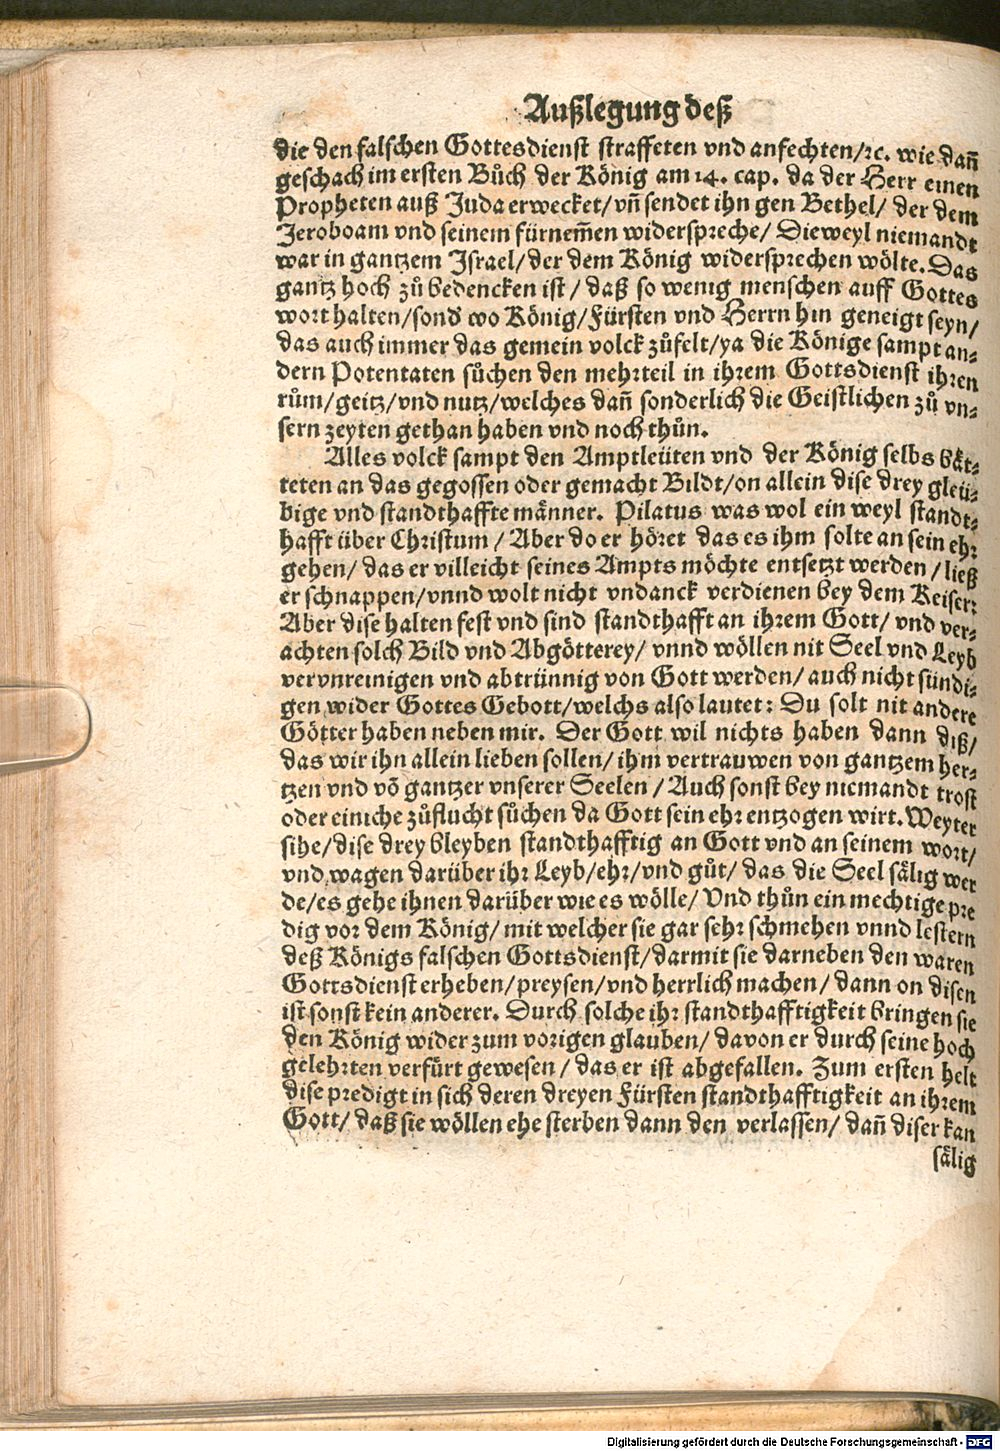 Außlegung deß
die den falschen Gottesdienst straffeten vnd anfechten/ꝛc. wie dañ
geschach im ersten Bůch der König am 14. cap. da der Herr einen
Propheten auß Juda erwecket/vñ sendet ihn gen Bethel/ der dem
Jeroboam vnd seinem fürnem̃en widerspreche/ Dieweyl niemandt
war in gantzem Israel/der dem König widersprechen wölte. Das
gantz hoch zů bedencken ist/ daß so wenig menschen auff Gottes
wort halten/sond̕ wo König/Fürsten vnd Herrn hin geneigt seyn/
das auch immer das gemein volck zůfelt/ya die Könige sampt an⸗
dern Potentaten sůchen den mehrteil in ihrem Gottsdienst ihren
rům/geitz/vnd nutz/welches dañ sonderlich die Geistlichen zů vn⸗
sern zeyten gethan haben vnd noch thůn.
Alles volck sampt den Amptleüten vnd der König selbs bät⸗
teten an das gegossen oder gemacht Bildt/on allein dise drey gleü⸗
bige vnd standthaffte männer. Pilatus was wol ein weyl standt⸗
hafft über Christum/ Aber do er höret das es ihm solte an sein ehr
gehen/ das er villeicht seines Ampts möchte entsetzt werden/ ließ
er schnappen/vnnd wolt nicht vndanck verdienen bey dem Keiser:
Aber dise halten fest vnd sind standthafft an ihrem Gott/ vnd ver⸗
achten solch Bild vnd Abgötterey/ vnnd wöllen nit Seel vnd Leyb
vervnreinigen vnd abtrünnig von Gott werden/ auch nicht sündi⸗
gen wider Gottes Gebott/welchs also lautet: Du solt nit andere
Götter haben neben mir. Der Gott wil nichts haben dann diß/
das wir ihn allein lieben sollen/ ihm vertrauwen von gantzem her⸗
tzen vnd võ gantzer vnserer Seelen/ Auch sonst bey niemandt trost
oder einiche zůflucht sůchen da Gott sein ehr entzogen wirt. Weyter
sihe/dise drey bleyben standthafftig an Gott vnd an seinem wort/
vnd wagen darüber ihr Leyb/ehr/vnd gůt/ das die Seel sälig wer
de/es gehe ihnen darüber wie es wölle/ Vnd thůn ein mechtige pre
dig vor dem König/ mit welcher sie gar sehr schmehen vnnd lestern
deß Königs falschen Gottsdienst/darmit sie darneben den waren
Gottsdienst erheben/preysen/vnd herrlich machen/ dann on disen
ist sonst kein anderer. Durch solche ihr standthafftigkeit bringen sie
den König wider zum vorigen glauben/ davon er durch seine hoch
gelehrten verfürt gewesen/ das er ist abgefallen. Zum ersten helt
dise predigt in sich deren dreyen Fürsten standthafftigkeit an ihrem
Gott/ daß sie wöllen ehe sterben dann den verlassen/ dañ diser kan
sälig
Digitalisierung gefördert durch die Deutsche Forschungsgemeinschaft - DFG